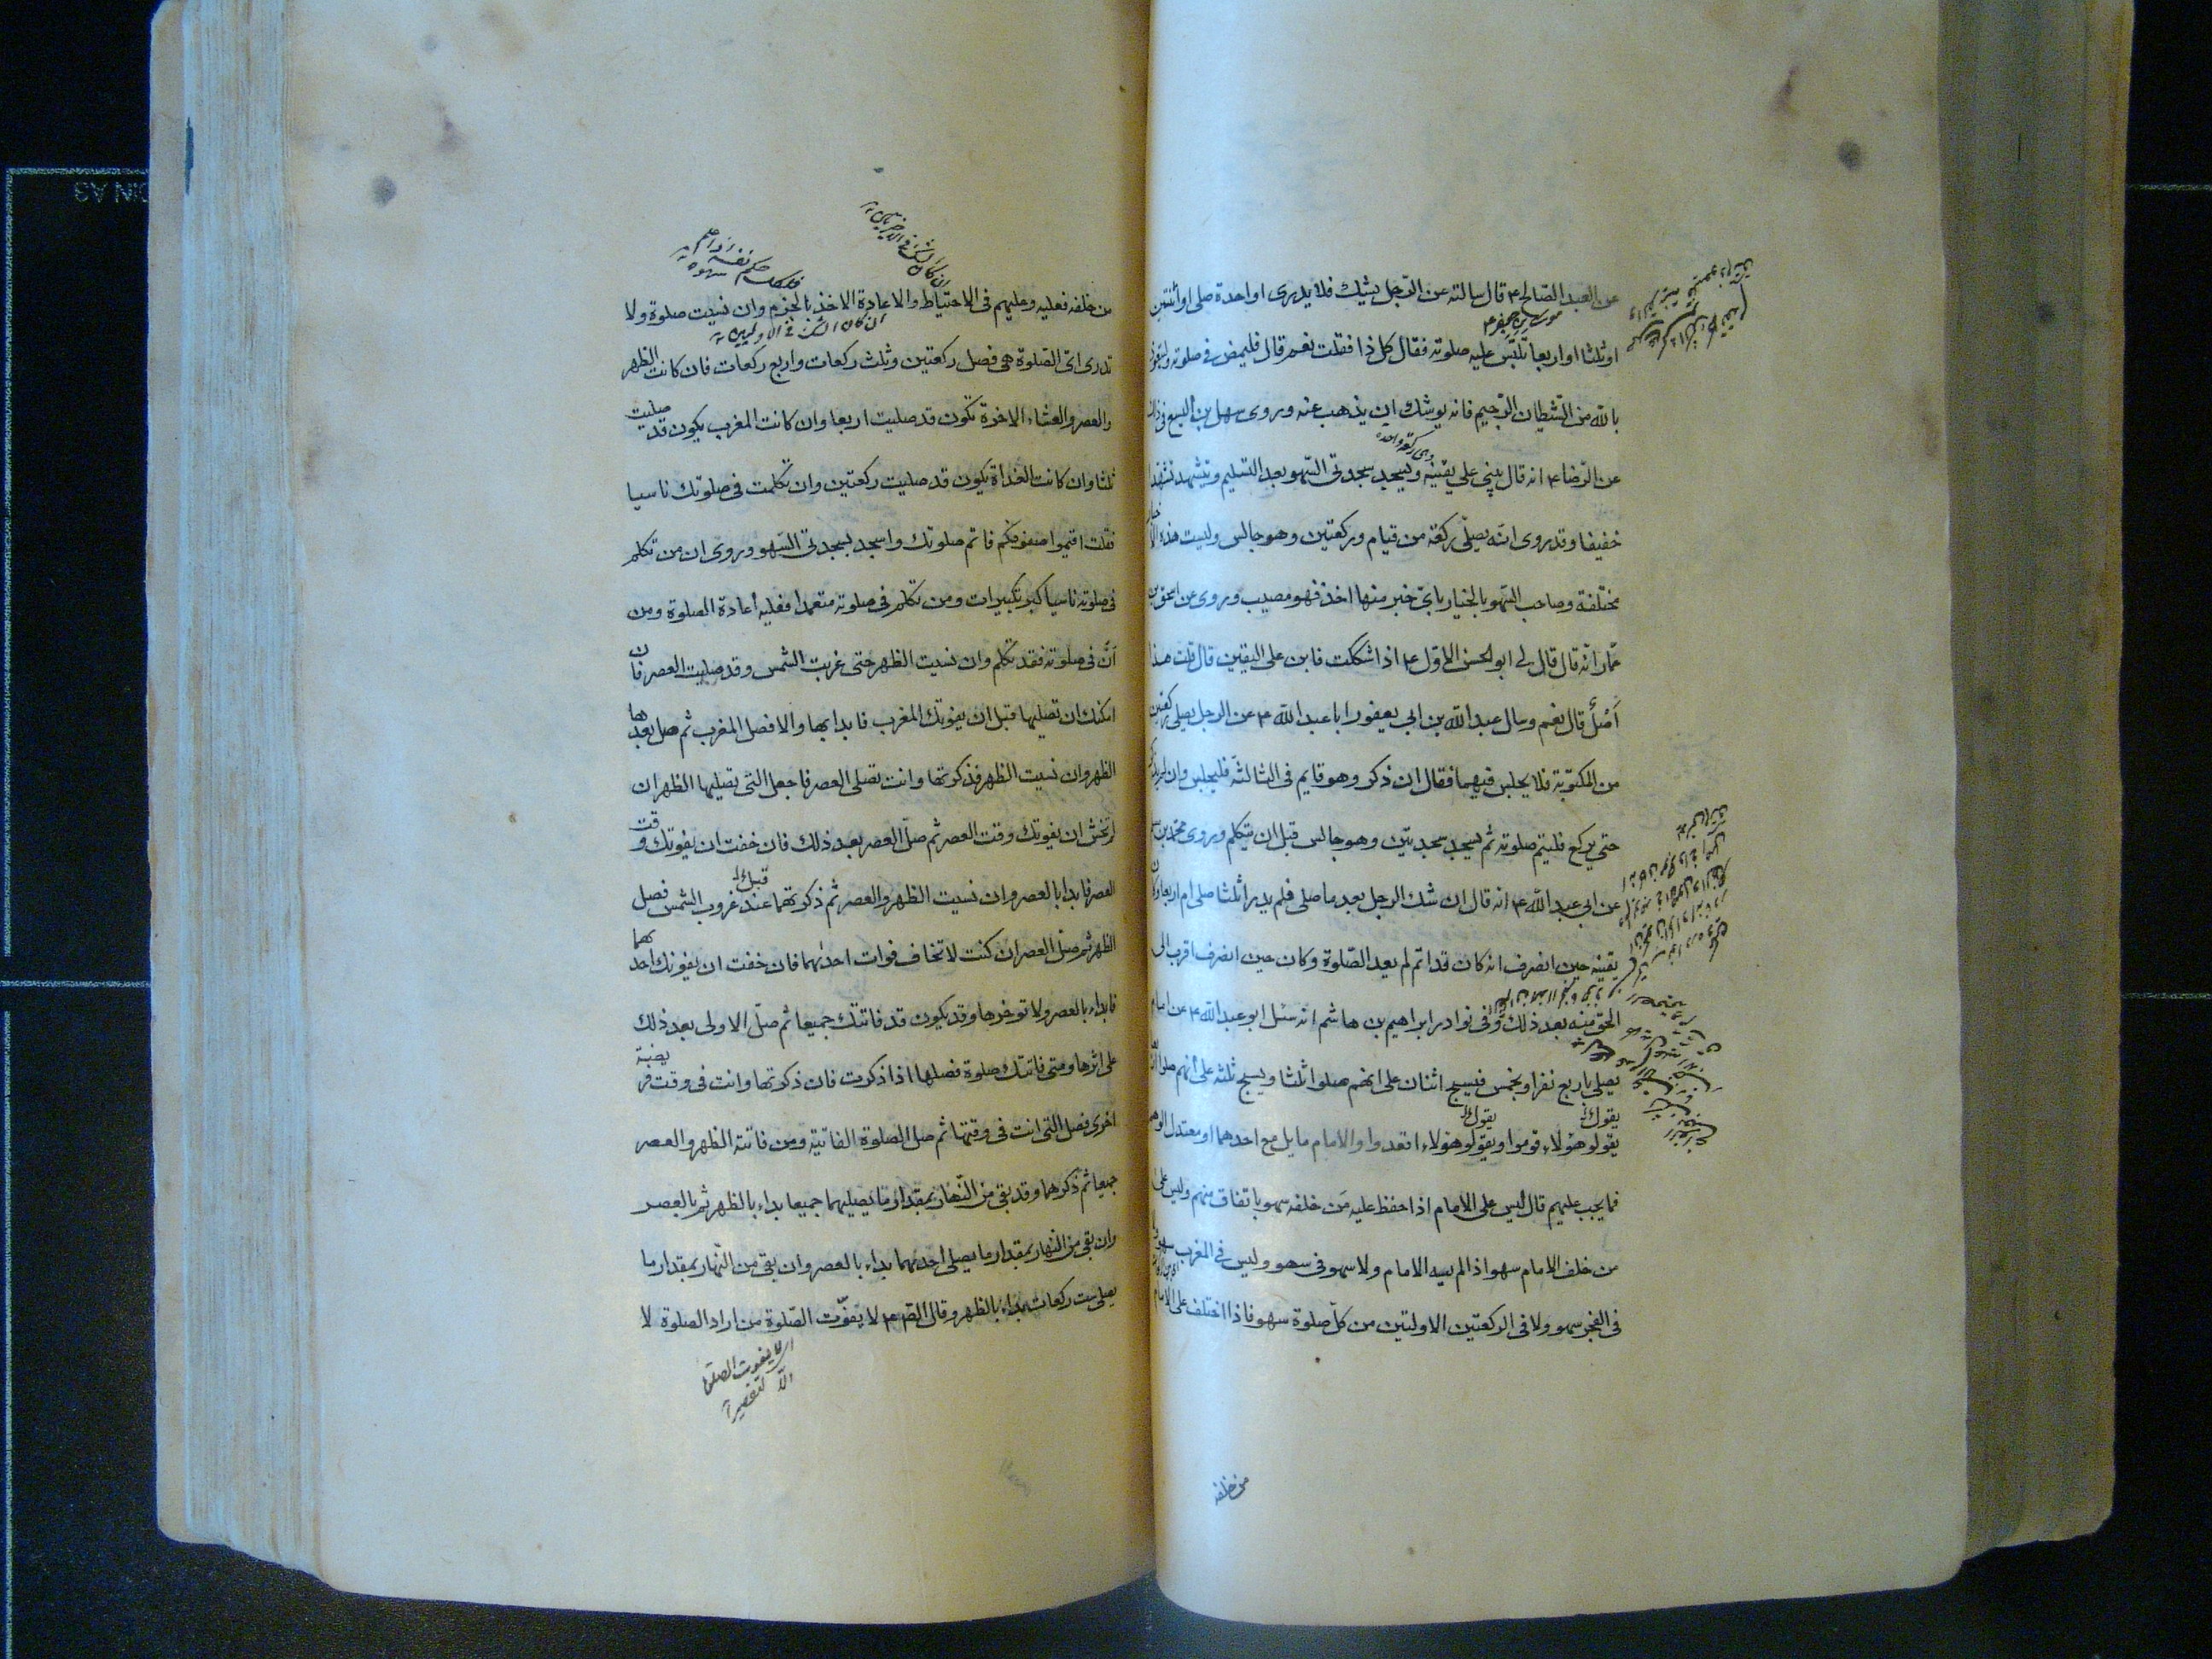 عن العبد الصالح ع قال سالته عن الرجل يشك فلا يدرى او احدة صلى او اثنتين
موسى بن جعفر ع
او ثلثا او اربعا تلتبس عليه صلوته فقال كل ذا فقلت نعم قال فليمض فى صلوته وليتعوذ
بالله من الشيطان الرجيم فانه يوشك ان يذهب عنه وروى سهل بن اليسع فى ذلك
عن الرضا ع انه قال يبنى على يقينه ويسجد سجدتى السهو بعد التسليم ويتشهد تشهدا
خفيفا وقد روى انه يصلى ركعة من قيام وركعتين وهو جالس وليست هذه الاخبار
مختلفة وصاحب السهو بالخيار باىّ خبر منها اخذ فهو مصيب وروى عن اسحق بن
عمار انه قال قال لى ابو الحسن الاول ع اذا شككت فابن على اليقين قال قلت هذا
اَصْلٌ قال نعم وسال عبد الله بن ابى يعفور ابا عبد الله ع عن الرجل يصلى ركعتين
من المكتوبة فلا يجلس فيهما فقال ان ذكر وهو قايم فى الثالثة فليجلس وان لم يذكر
حتى يركع فليتم صلوته ثم يسجد سجدتين وهو جالس قبل ان يتكلم وروى محمد بن مسلم
عن ابى عبد الله ع انه قال ان شك الرجل بعد ما صلى فلم يدر اثلثا صلى ام اربعا وكان
يقينه حين انصرف انه كان قد اتم لم يعد الصلوة وكان حين انصرف اقرب الى
الحق منه بعد ذلك وفى نوادر ابراهيم بن هاشم انه سئل ابو عبد الله ع عن امام
يصلى باربع نفر او بخمس فيسبح اثنان على انهم صلوا ثلثا ويسبح ثلثه على انهم صلوا اربعا
يقول يقول
يقولو هؤلاء قوموا ويقولو هؤلاء اقعدوا والامام مايل مع احدهما او معتدل الوهم
فما يجب عليهم قال ليس على الامام اذا حفظ عليه مَن خلفه سهو باتفاق منهم وليس على
من خلف الامام سهو اذا لم يسه الامام ولا سهو فى سهو وليس فى المغرب سهو ولا
فى الفجر سهو ولا فى الركعتين الاولتين من كل صلوة سهو فاذا اختلف على الامام
من خلفه
ان كان الشك فى الاخيرتين
من خلفه فعليه وعليهم فى الاحتياط والاعادة الاخذ بالجزم وان نسيت صلوة ولا
ان كان الشك فى الاوليين
تدرى اىّ الصلوة هى فصل ركعتين وثلث ركعات واربع ركعات فان كانت الظهر
والعصر والعشاء الاخرة تكون قد صليت اربعا وان كانت المغرب يكون قد صليت
ثلثا وان كانت الغداة يكون قد صليت ركعتين وان تكلمت فى صلوتك ناسيا
فقلت اقيموا صفوفكم فاتم صلوتك واسجد سجدتى السهو وروى ان من تكلم
فى صلوته ناسيا كبر تكبيرات ومن تكلم فى صلوته متعمدا فعليه اعادة الصلوة ومن
اَنَّ فى صلوته فقد تكلم وان نسيت الظهر حتى غربت الشمس وقد صليت العصر فان
امكنك ان تصليها قبل ان يفوتك المغرب فابدا بها والا فصل المغرب ثم صل بعدها
الظهر وان نسيت الظهر فذكرتها وانت تصلى العصر فاجعل التى تصليها الظهر ان
لم تخش ان يفوتك وقت العصر ثم صلّ العصر بعد ذلك فان خفت ان يفوتك وقت
العصر فابدا بالعصر وان نسيت الظهر والعصر ثم ذكرتهما عند غروب الشمس فصل
الظهر ثم صلّ العصر ان كنت لا تخاف فوات احدٰيهما فان خفت ان يفوتك احدٰيهما
فابداء بالعصر ولا توخرها وقد يكون قد فاتتك جميعا ثم صلّ الاولى بعد ذلك
على اثرها ومتى فاتتك صلوة فصلها اذا ذكرت فان ذكرتها وانت فى وقت فريضة
اخرى فصل التى انت فى وقتها ثم صل الصلوة الفائتة ومن فاتته الظهر والعصر
جميعا ثم ذكرهما وقد بقى من النهار بمقدار ما يصليهما جميعا بداء بالظهر ثم بالعصر
وان بقى من النهار بمقدار ما يصلى احديهما بداء بالعصر وان بقى من النهار بمقدار ما
يصلى ست ركعات بداء بالظهر وقال الصّ ع لا يفوّت الصلوة من اراد الصلوة لا